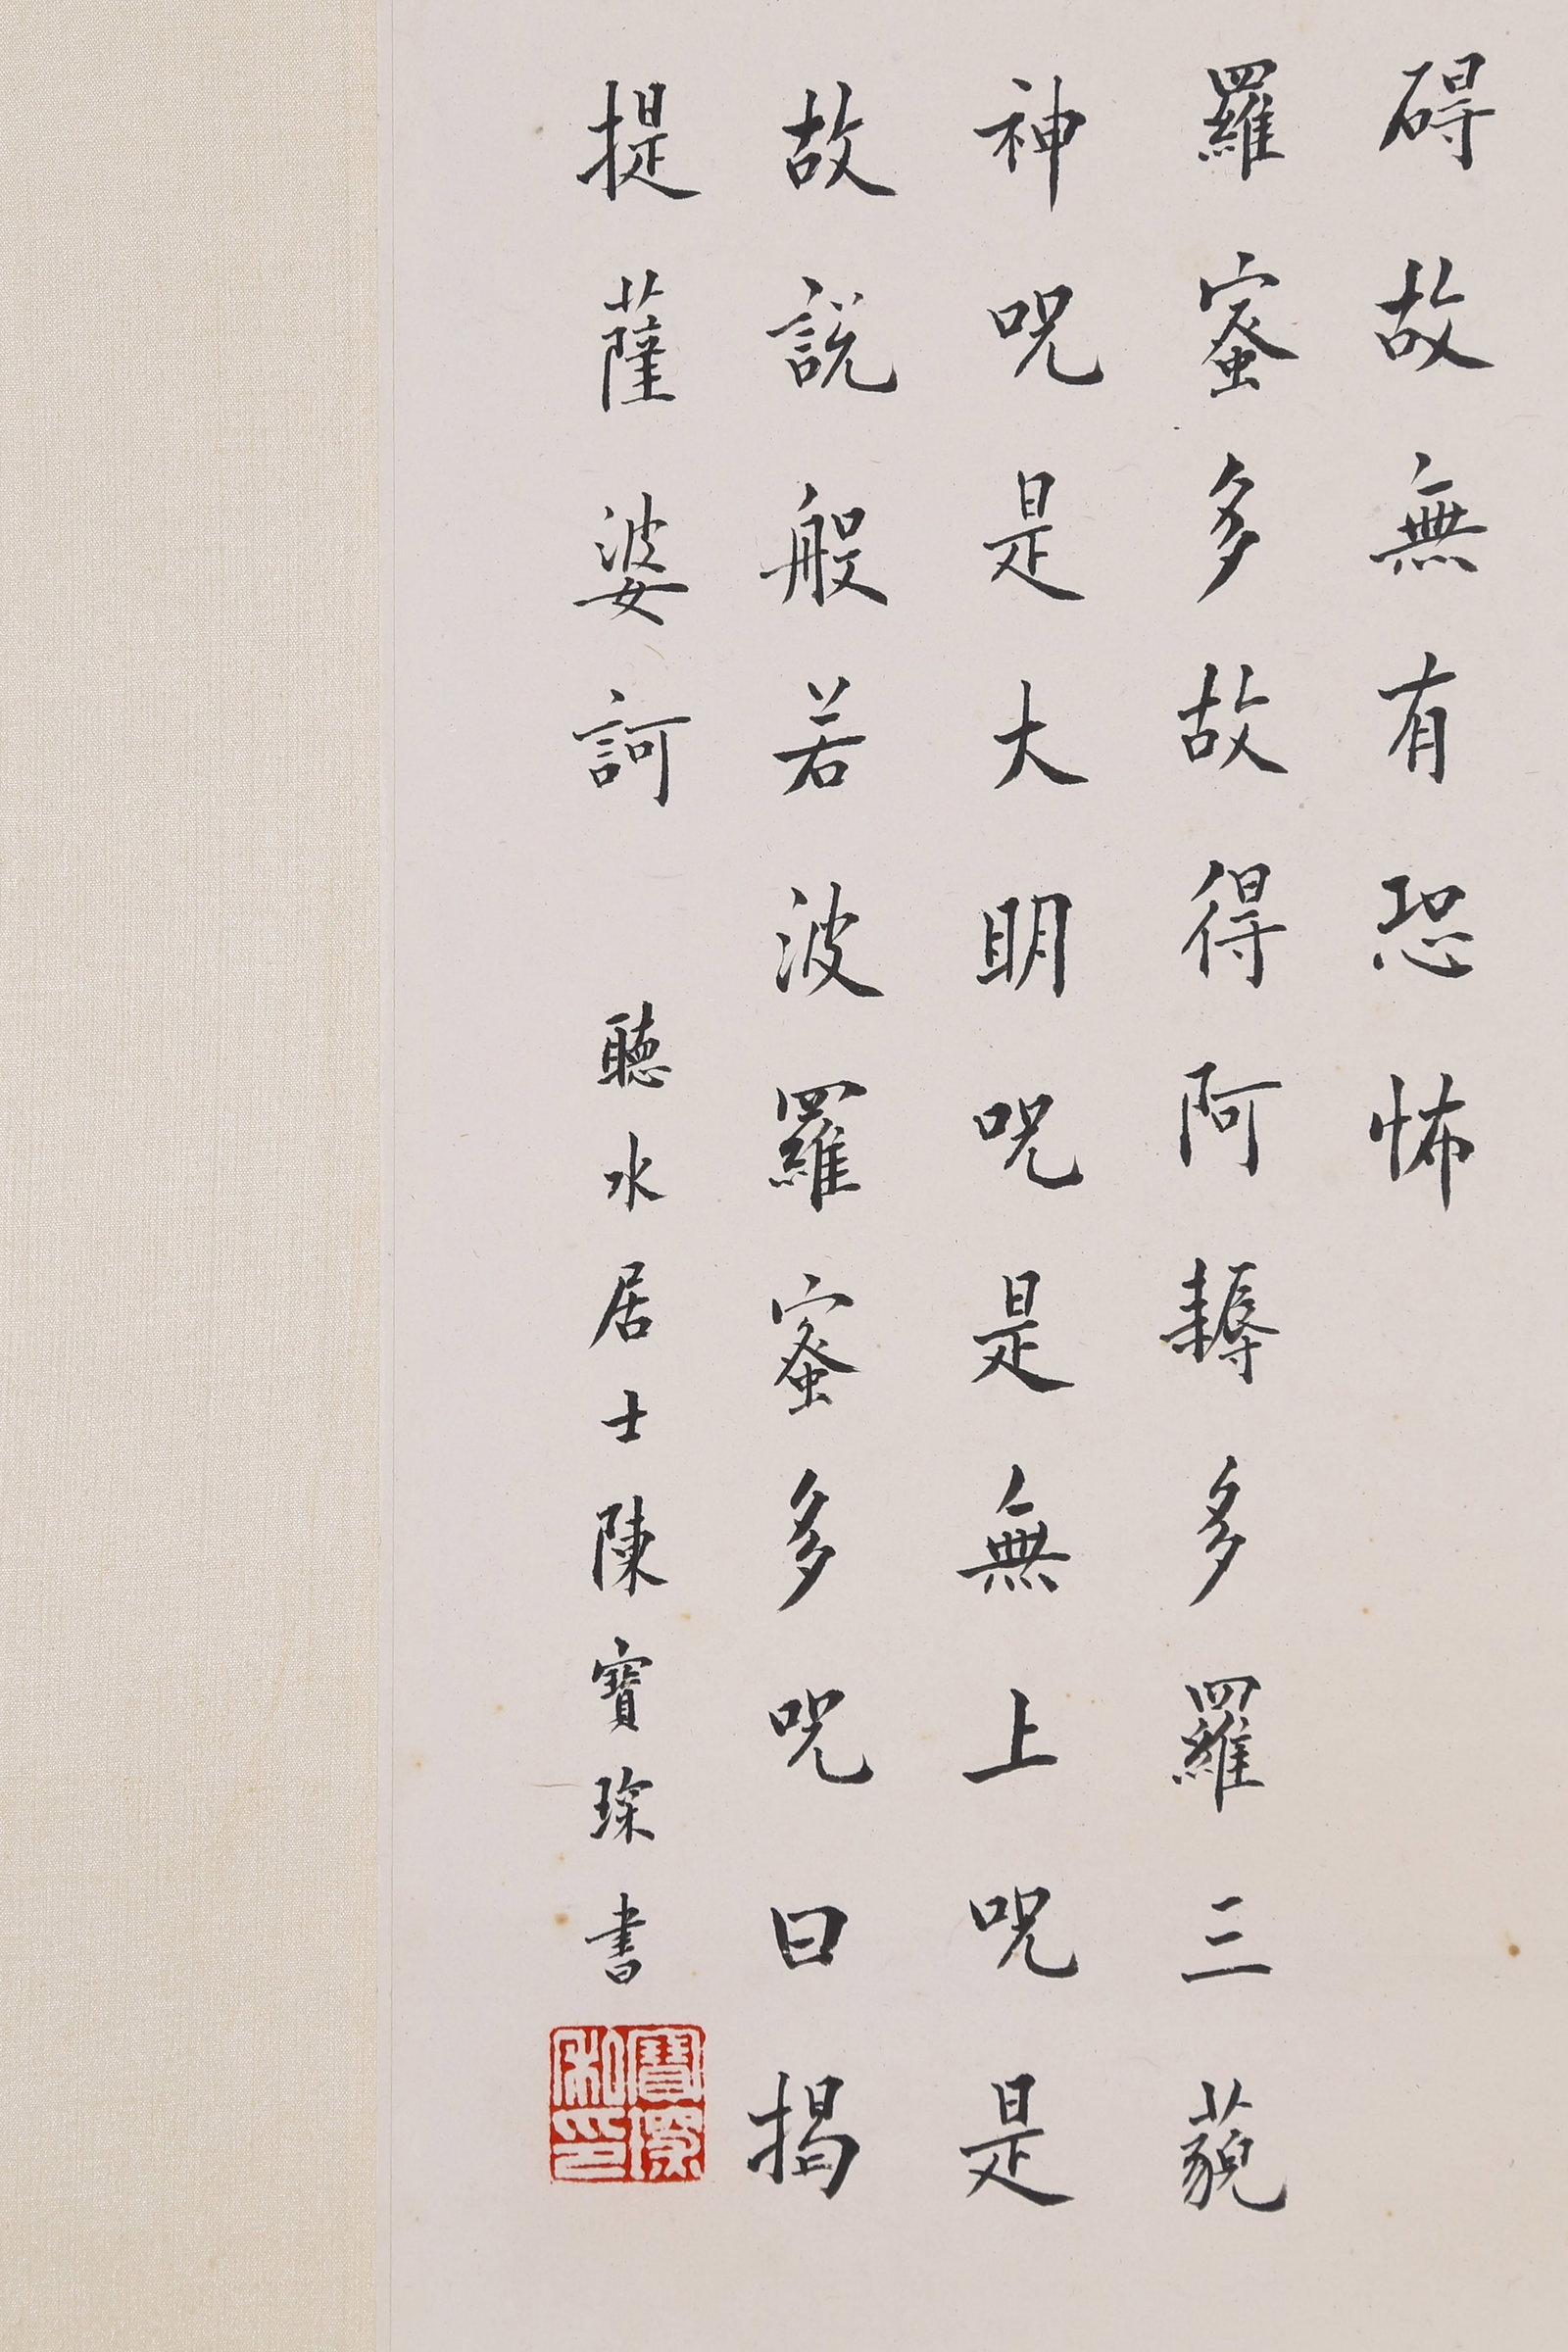 碍故無有恐怖
羅蜜多故得阿耨多羅三藐
神咒是大明咒是無上咒是
故説般若波羅蜜多咒曰揭
提薩婆訶
聽水居士陳寶琛書
寶琛私印